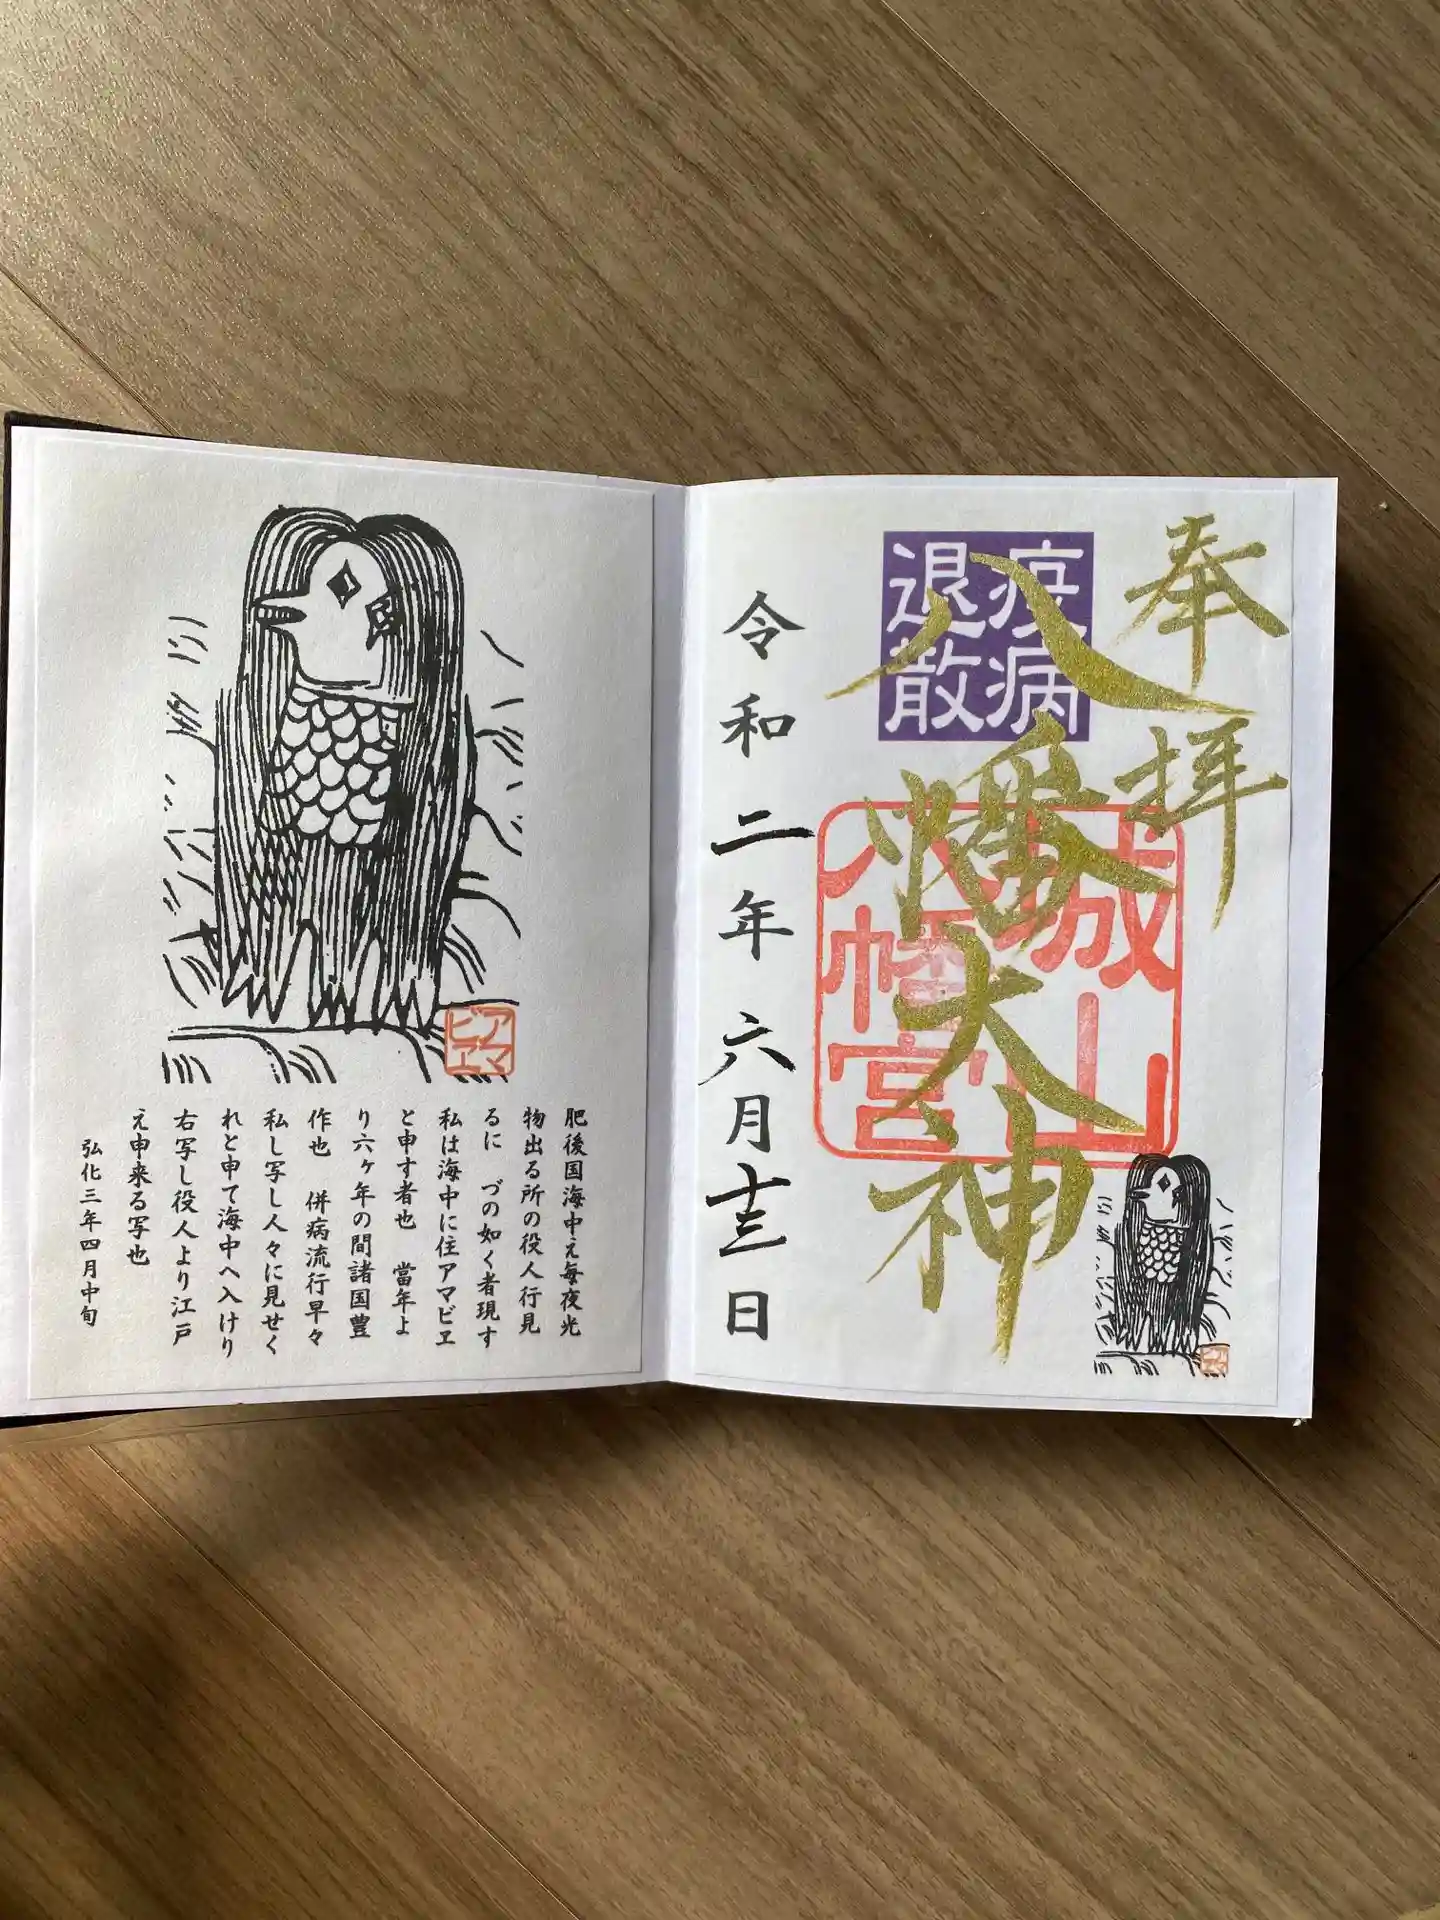 奉拝
疫病
退散
八幡大神
城山
八幡宮
令和二年六月十三日
アマ
ビヱ
肥後国海中え毎夜光
物出る所の役人行見
るに　づの如く者現す
私は海中に住アマビヱ
と申す者也　當年よ
り六ヶ年の間諸国豊
作也　併病流行早々
私し写し人々に見せく
れと申て海中へ入けり
右写し役人より江戸
え申来る写也
弘化三年四月中旬